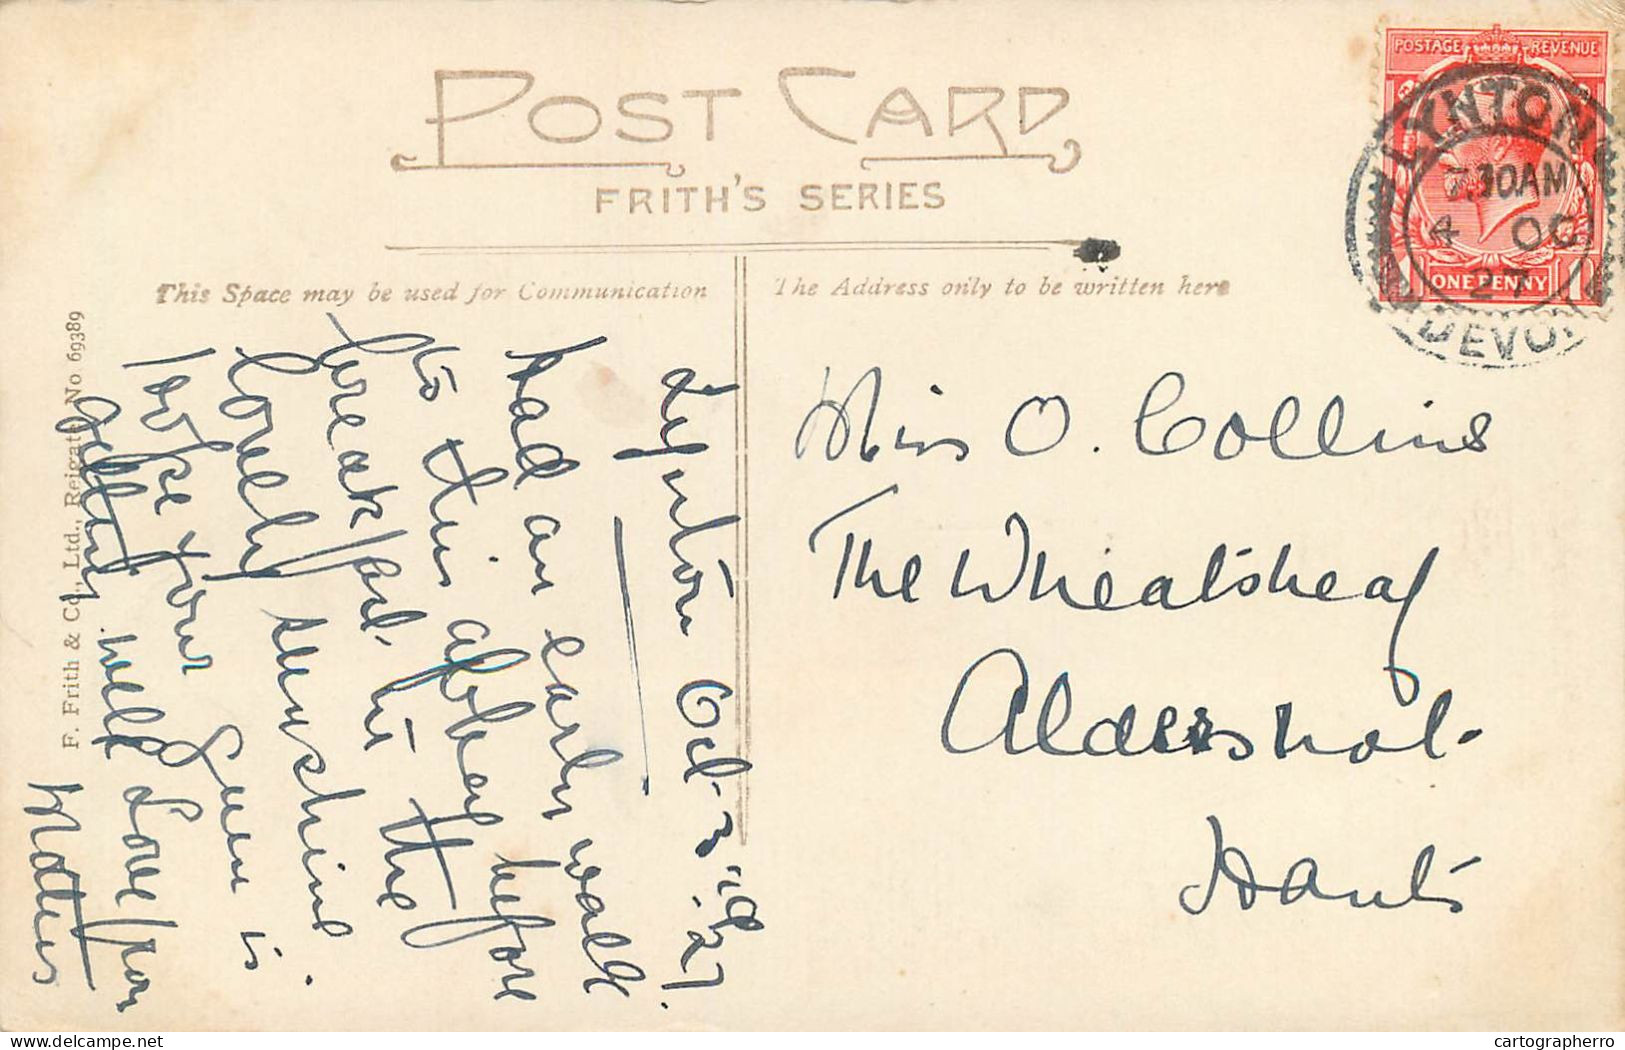 POST CARD
FRITH'S SERIES
This Space may be used for Communication
The Address only to be written here
F. Frith & Co., Ltd., Reigate. No 69389
Lynton Oct 3rd
.27.
had an early walk
to this a before
breakfast in the
lovely sunshine.
hope your is
getting well Love from
Miss O. Collins
The Wheatsheaf
Aldershot.
Hants
POSTAGE REVENUE
ONE PENNY
1 1
LYNTON
.30AM
4 OC
27
DEVON
cartographerro